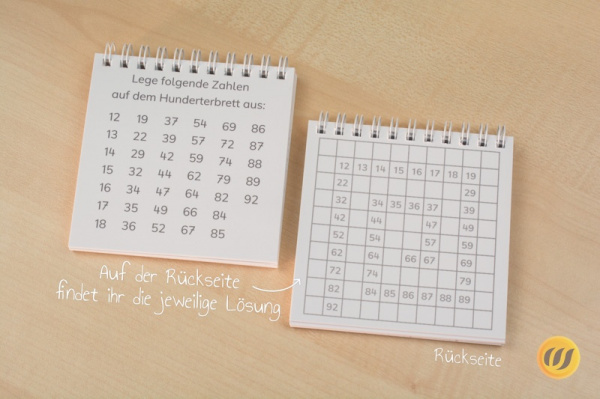 Lege folgende Zahlen
auf dem Hunderterbrett aus:
12 19 37 54 69 86
13 22 39 57 72 87
14 29 42 59 74 88
15 32 44 62 79 89
16 34 47 64 82 92
17 35 49 66 84
18 36 52 67 85
12 13 14 15 16 17 18 19
22 29
32 34 35 36 37 39
42 44 47 49
52 54 57 59
62 64 66 67 69
72 74 79
82 84 85 86 87 88 89
92
Auf der Rückseite
findet ihr die jeweilige Lösung
Rückseite